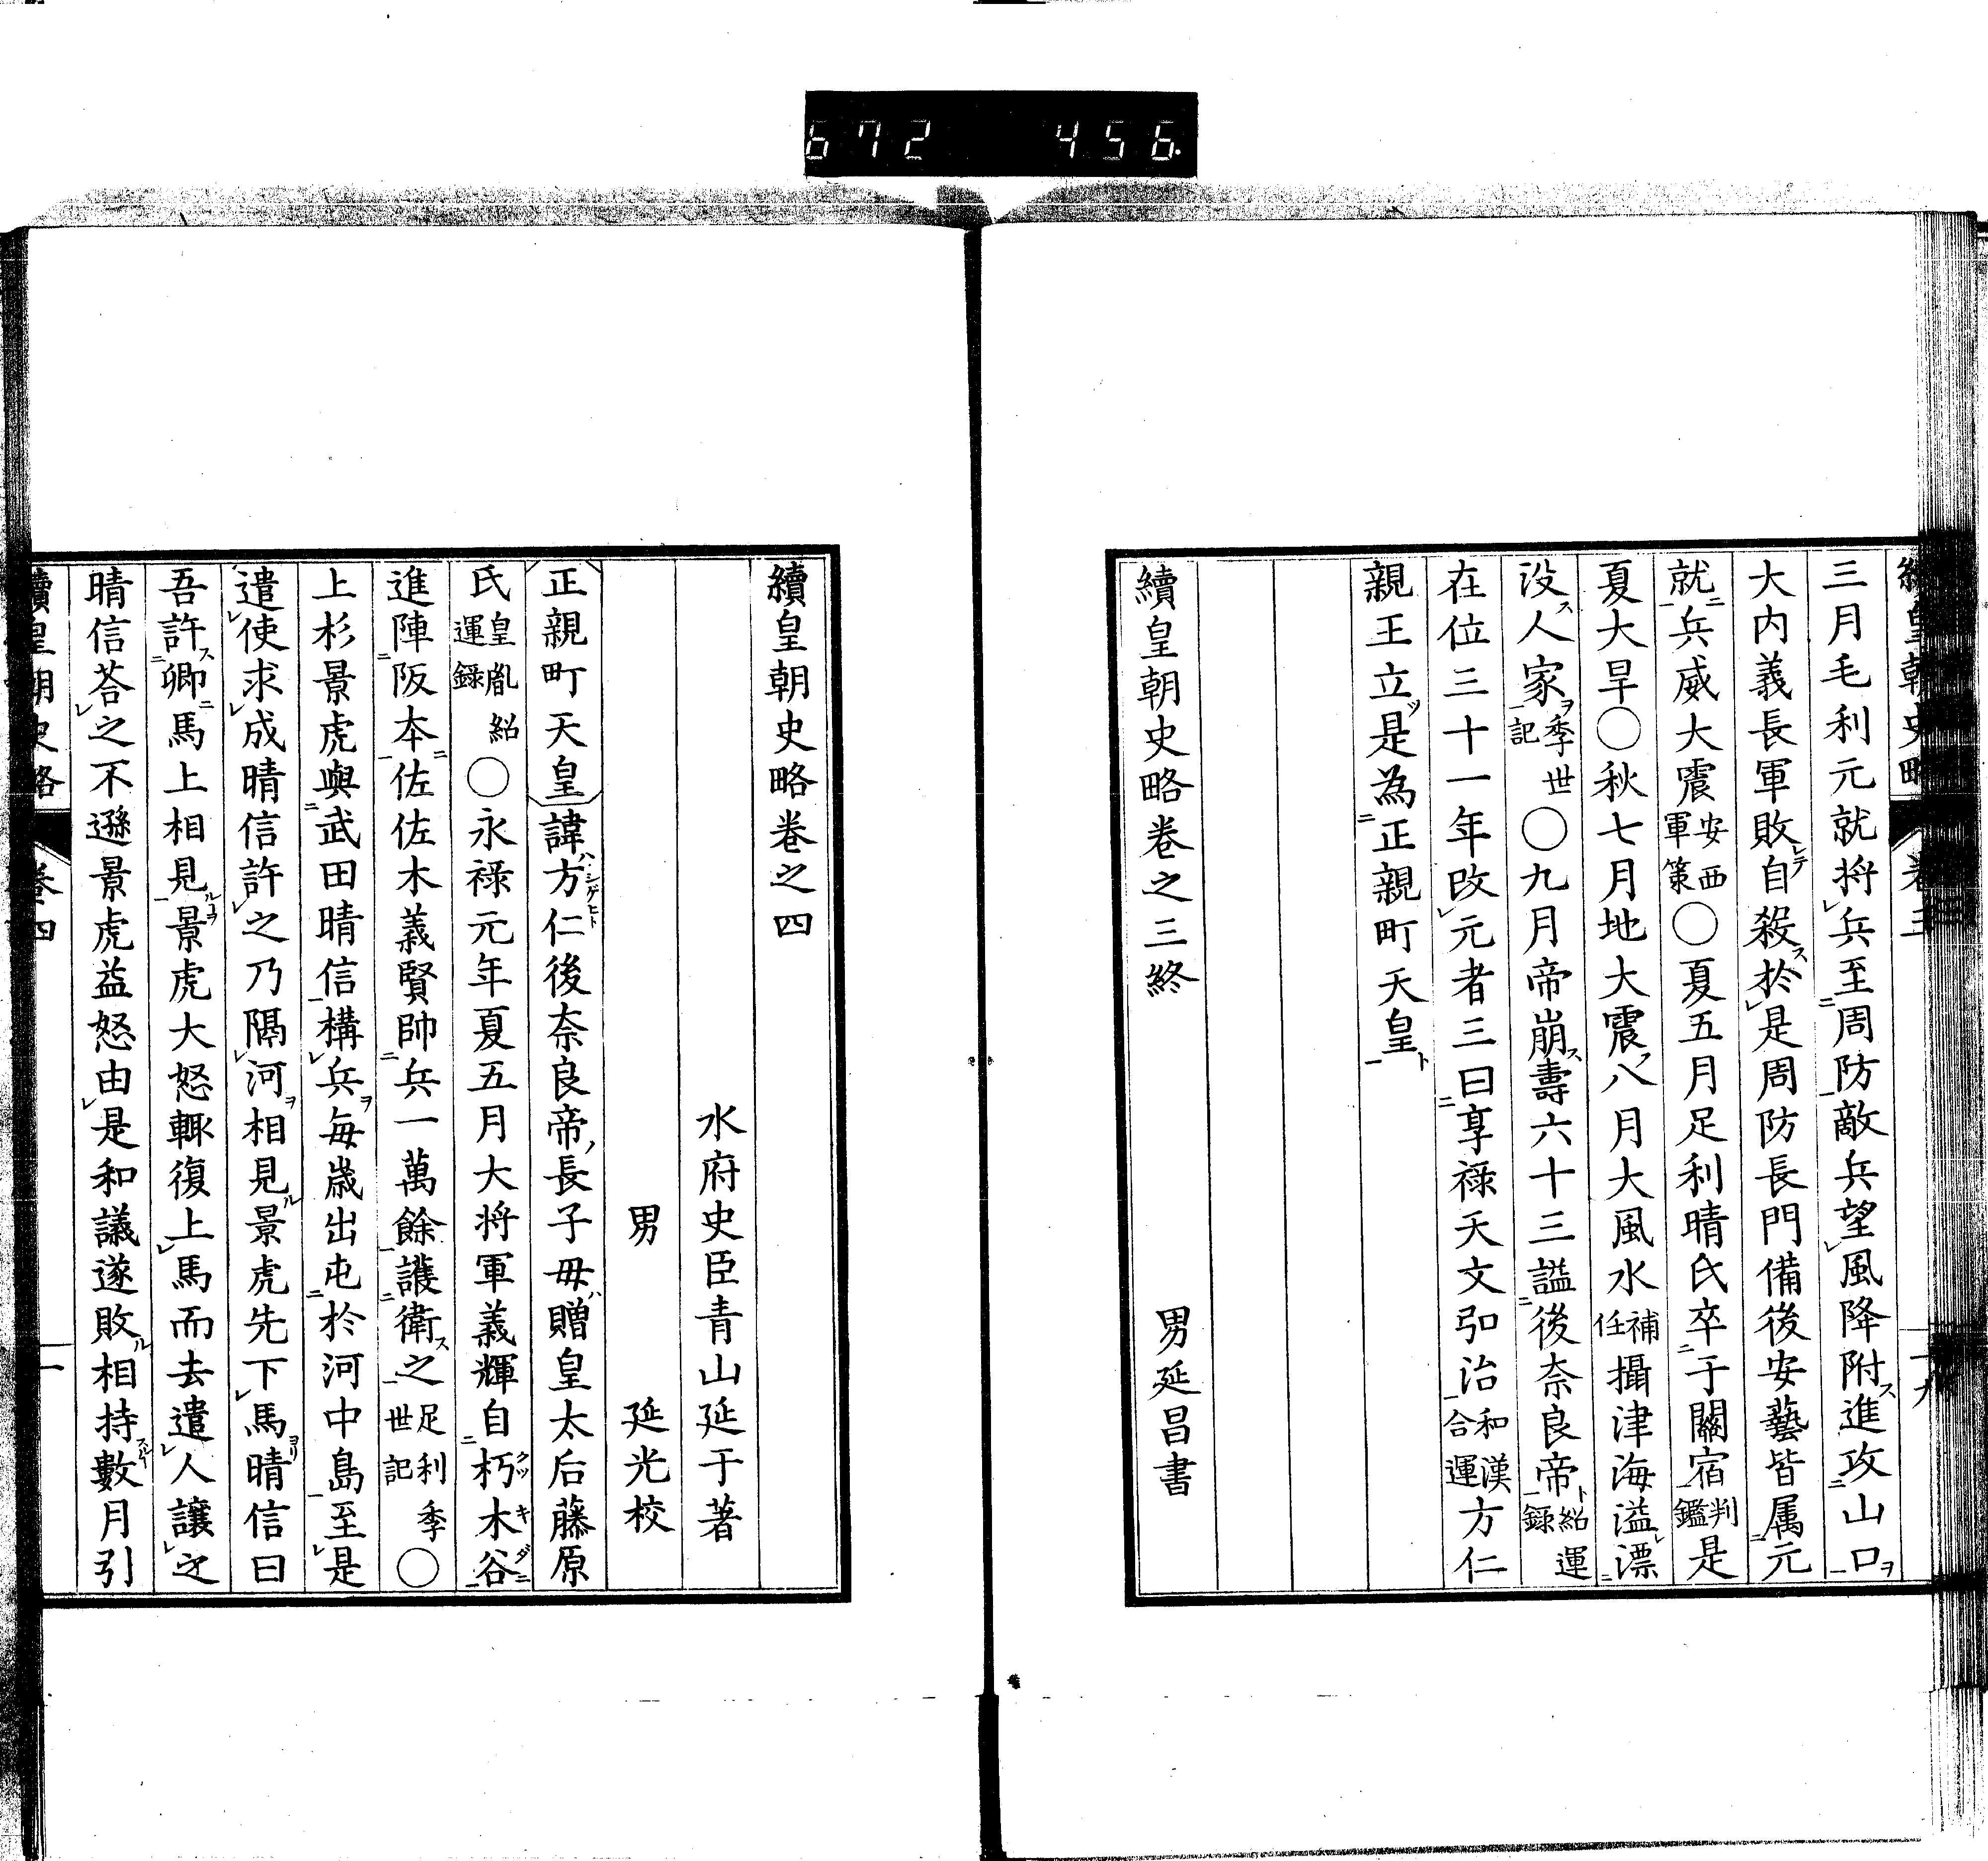 672 456.
三月毛利元就将兵至周防敵兵望風降附進攻山口
大内義長軍敗自殺於是周防長門備後安藝皆属元
就兵威大震安西軍策○夏五月足利晴氏卒于關宿判鑑是
夏大旱○秋七月地大震八月大風水補任攝津海溢漂
没人家季世記○九月帝崩壽六十三謚後奈良帝紹運録
在位三十一年改元者三曰享禄天文弘治和漢合運方仁
親王立是為正親町天皇
續皇朝史略巻之三終
男延昌書
續皇朝史略巻之四
水府史臣青山延于著
男 延光校
正親町天皇諱方仁後奈良帝長子毋贈皇太后藤原
氏皇胤紹運録○永禄元年夏五月大将軍義輝自朽木谷
進陣阪本佐佐木義賢帥兵一萬餘護衛之足利季世記○
上杉景虎與武田晴信構兵毎歳出屯於河中島至是
遣使求成晴信許之乃隔河相見景虎先下馬晴信曰
吾許卿馬上相見景虎大怒輒復上馬而去遣人譲之
晴信荅之不遜景虎益怒由是和議遂敗相持數月引
續皇朝史略 巻四 一